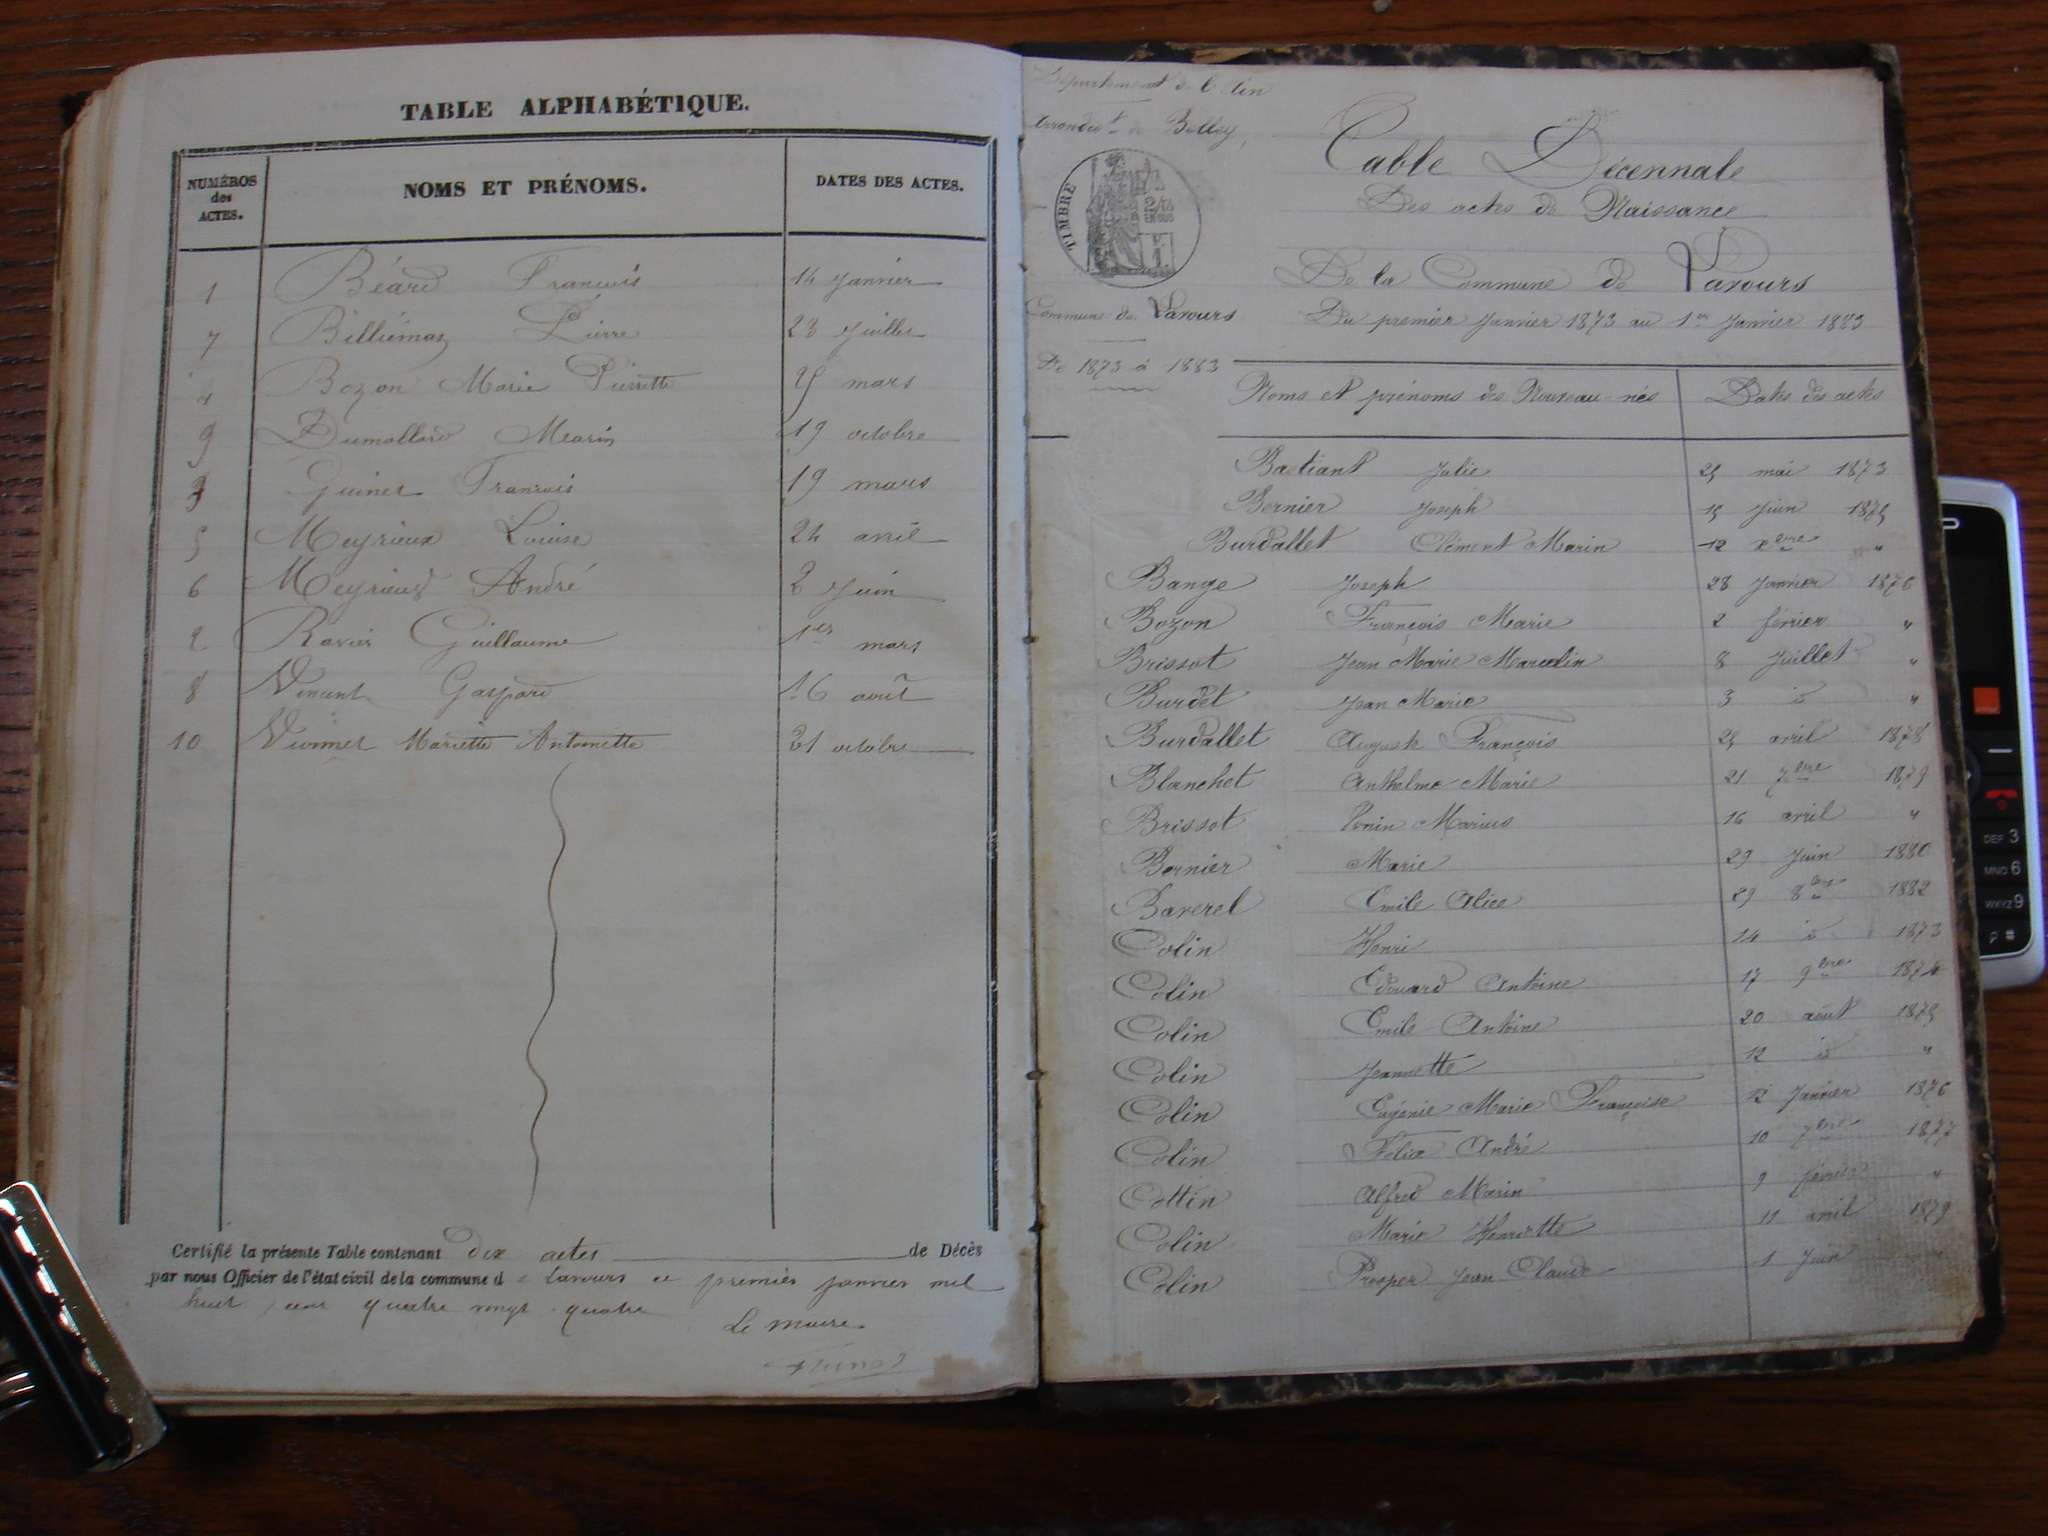 TABLE ALPHABÉTIQUE.
NUMÉROS des ACTES. NOMS ET PRÉNOMS. DATES DES ACTES.
1 Béard François 14 Janvier
7 Billiémaz Pierre 28 Juillet
Bozon Marie Pierrette 25 mars
9 Dumollard Marin 19 octobre
3 Guinet François 19 mars
5 Meyrieux Louise 24 avril
6 Meyrieux André 2 Juin
2 Ravier Guillaume 1er mars
8 Vincent Gaspard 16 août
10 Vionnet Mariette Antoinette 21 octobre
Certifié la présente Table contenant dix actes de Décès
par nous Officier de l'état civil de la commune de Lavours ce premier janvier mil
huit cent quatre vingt quatre
Le maire
Département de l'Ain
Arrondist de Belley,
TIMBRE
2/10 EN SUS
Commune de Lavours
De 1873 à 1883
Table Décennale
Des actes de Naissance
De la Commune de Lavours
Du premier Janvier 1873 au 1er Janvier 1883
Noms et prénoms des Nouveau-nés Dates des actes
Bastiant Julie 25 mai 1873
Bernier Joseph 15 Juin 1875
Burdallet Clément Marin 12 xbre "
Bange Joseph 28 Janvier 1876
Bozon François Marie 2 février "
Brissot Jean Marie Marcelin 8 Juillet "
Burdet Jean Marie 3 id "
Burdallet Auguste François 25 avril 1878
Blanchet Anthelme Marie 21 7bre 1879
Brissot Marius 16 avril "
Bernier Marie 29 Juin 1880
Baverel Emile Alice 29 8bre 1882
Colin Henri 14 id 1873
Colin Edouard Antoine 17 9bre 1874
Colin Emile Antoine 20 août 1875
Colin Jeannette 12 id "
Colin Eugénie Marie Françoise 12 Janvier 1876
Colin Félix André 10 7bre 1877
Cottin Alfred Marin 9 février "
Colin Marie Henriette 11 avril 1879
Colin Prosper Jean Claude 1 Juin
DEF 3
MNO 6
WXYZ 9
#